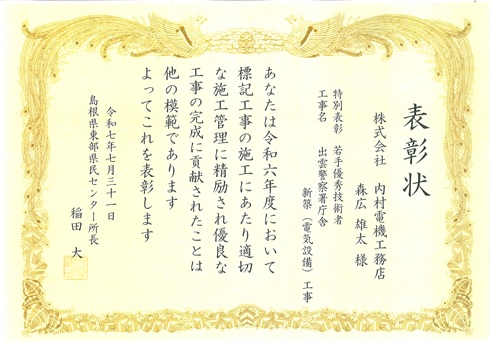 表彰状
株式会社 内村電機工務店
森広 雄太 様
特別表彰 若手優秀技術者
工事名 出雲警察署庁舎
新築(電気設備)工事
あなたは令和六年度において
標記工事の施工にあたり適切
な施工管理に精励され優良な
工事の完成に貢献されたことは
他の模範であります
よってこれを表彰します
令和七年七月三十一日
島根県東部県民センター所長
稲田 大